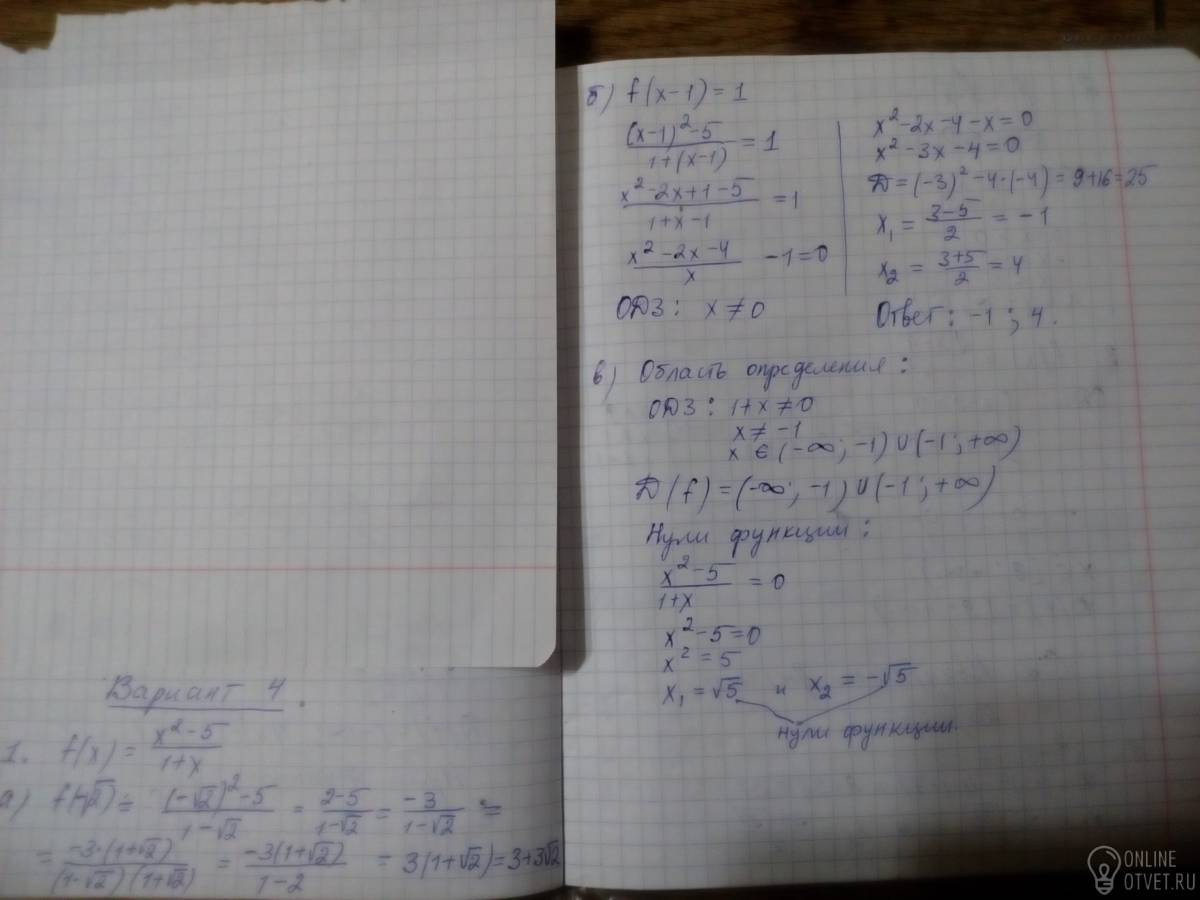 Вариант 4.
1. f(x) = (x² - 5)/(1+x)
а) f(-√2) = ((-√2)² - 5)/(1-√2) = (2-5)/(1-√2) = -3/(1-√2) =
= (-3·(1+√2))/((1-√2)(1+√2)) = (-3(1+√2))/(1-2) = 3(1+√2) = 3+3√2
б) f(x-1) = 1
((x-1)² - 5)/(1+(x-1)) = 1
(x² - 2x + 1 - 5)/(1+x-1) = 1
(x² - 2x - 4)/x - 1 = 0
ОДЗ: x ≠ 0
x² - 2x - 4 - x = 0
x² - 3x - 4 = 0
D = (-3)² - 4·(-4) = 9+16 = 25
x₁ = (3-5)/2 = -1
x₂ = (3+5)/2 = 4
Ответ: -1 ; 4.
в) Область определения:
ОДЗ: 1+x ≠ 0
x ≠ -1
x ∈ (-∞; -1) ∪ (-1; +∞)
D(f) = (-∞; -1) ∪ (-1; +∞)
Нули функции:
(x² - 5)/(1+x) = 0
x² - 5 = 0
x² = 5
x₁ = √5 и x₂ = -√5
нули функции.
ONLINE
OTVET.RU